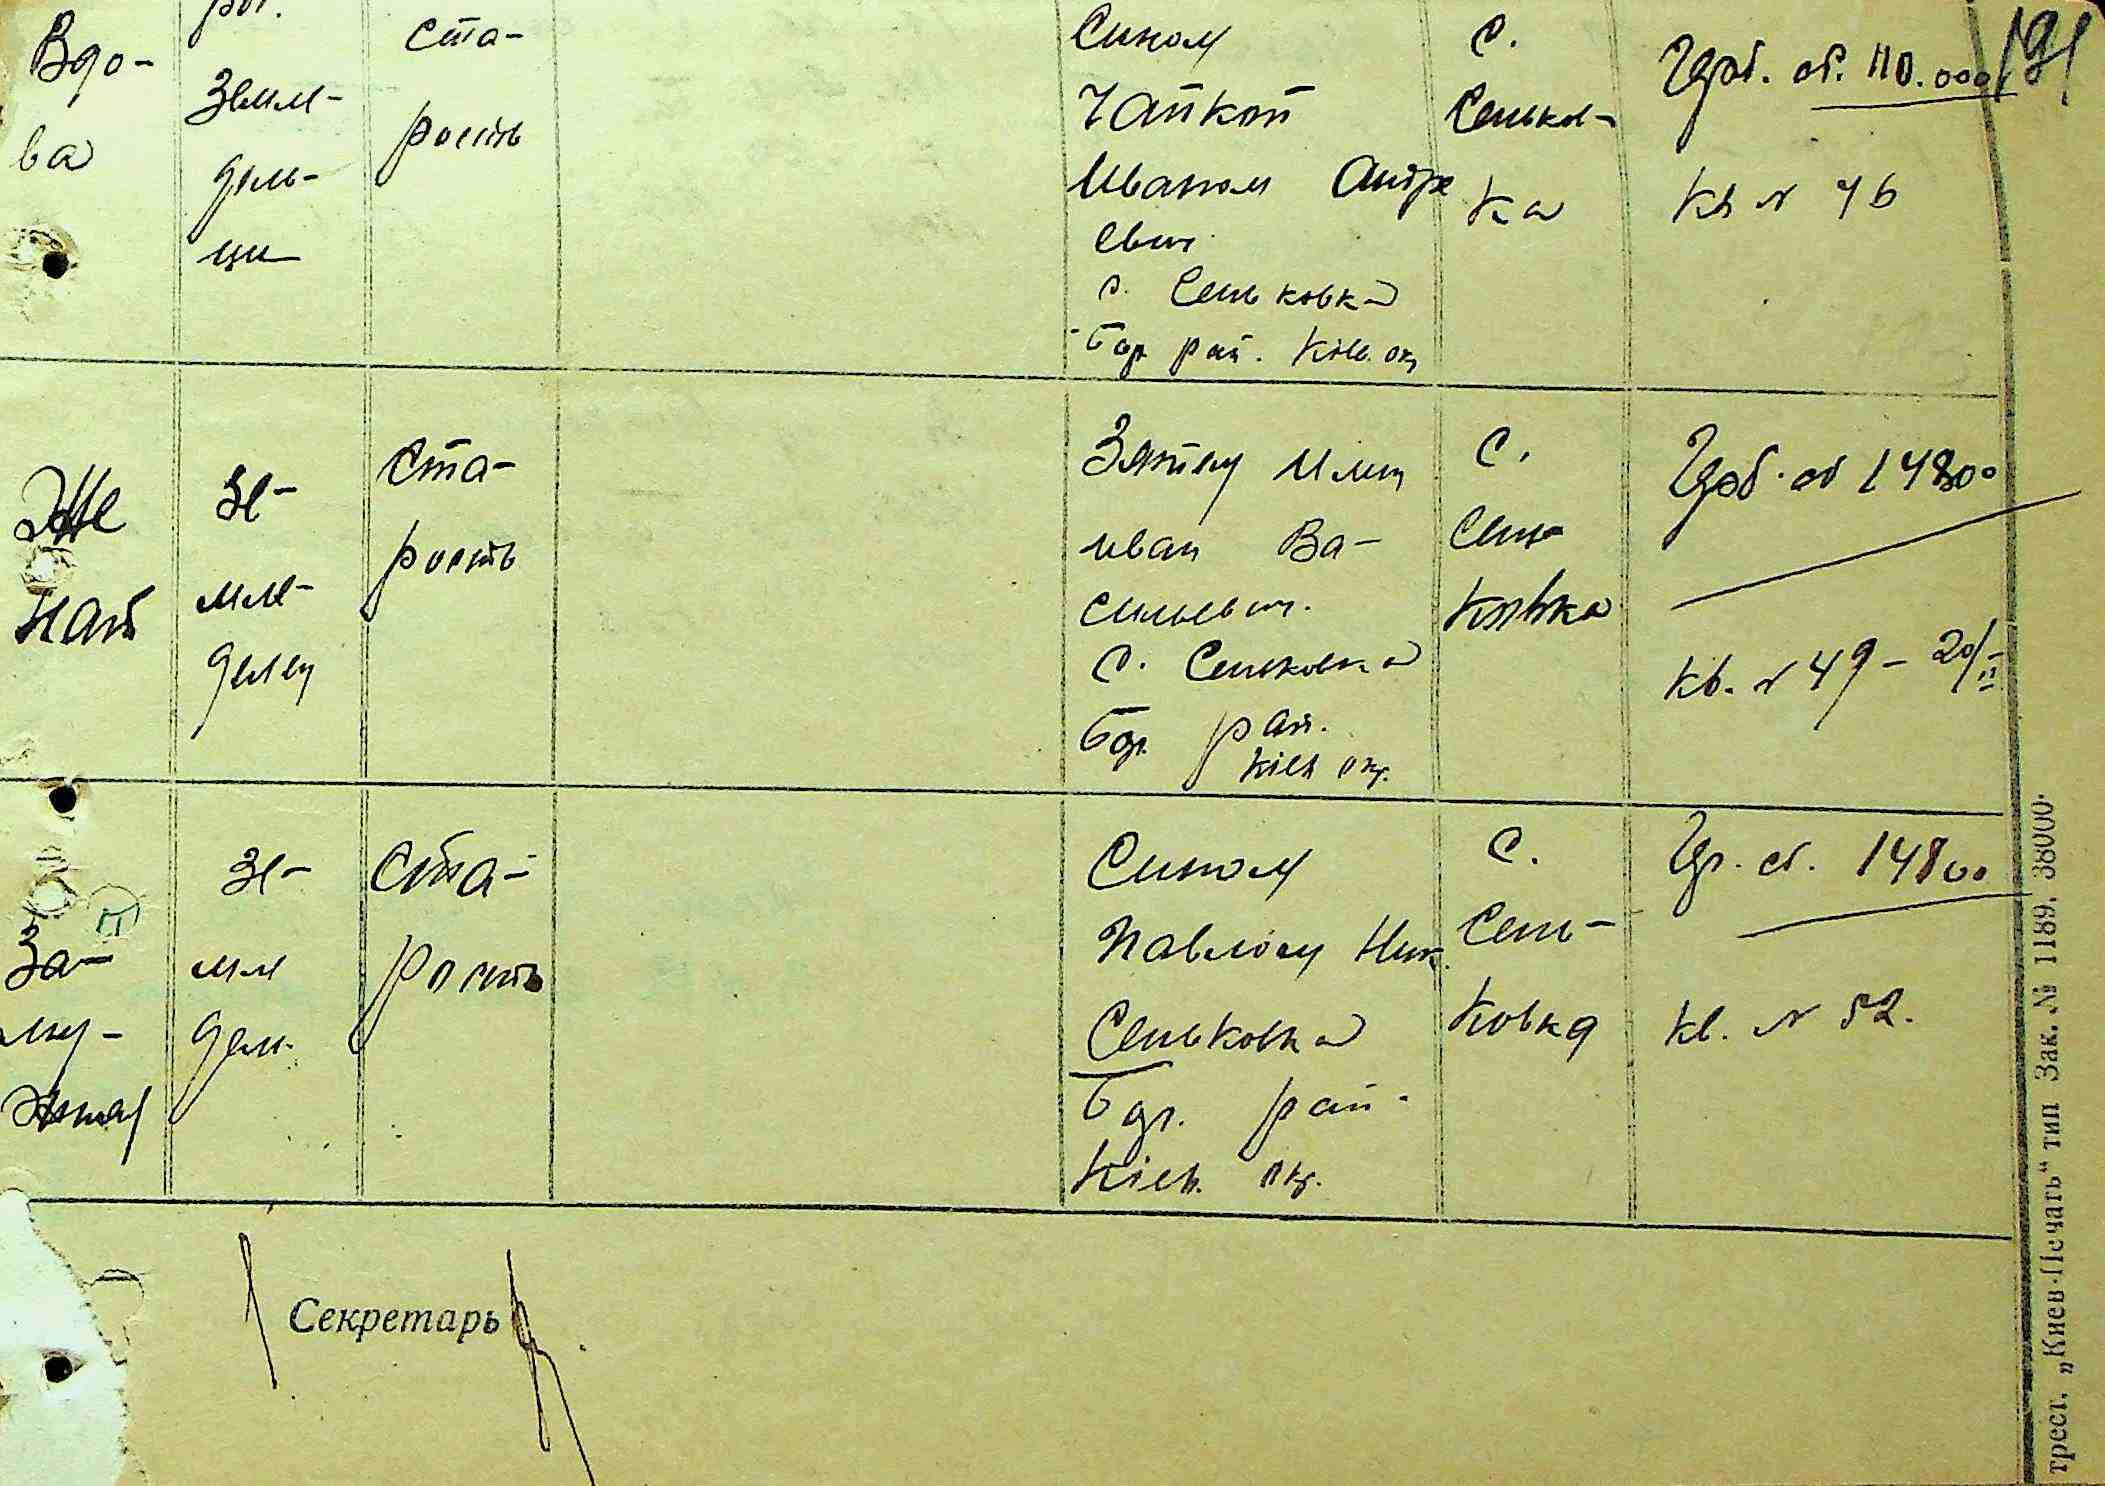 191
Вдо-
ва
Земле-
дель-
цы
ста-
рость
Сином
Чапкой
Иваном Андре
евич
с. Сеньковка
Бор рай. Київ. ок
с.
Сеньков-
ка
Гроб. об. 110.000
Кв N 46
Же
нат
зе-
мле-
делец
ста-
рость
Зятем
Иван Ва-
сильевич.
с. Сеньковка
Бор. рай.
Київ окр.
с.
Сень
ковка
Гроб. об 14800
кв. N 49 - 20/II
За-
му-
жняя
зе-
мле
дел.
ста-
рость
Сином
Павлом Ник.
Сеньковка
Бор. рай.
Київ. окр.
с.
Сень-
ковка
Гр. об. 14800
кв. N 52.
Секретарь
трест. „Киев-Печать“ тип Зак. № 1189. 38000.